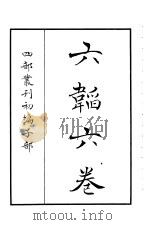 六韜六卷
四部叢刊初編子部
mtoou.info